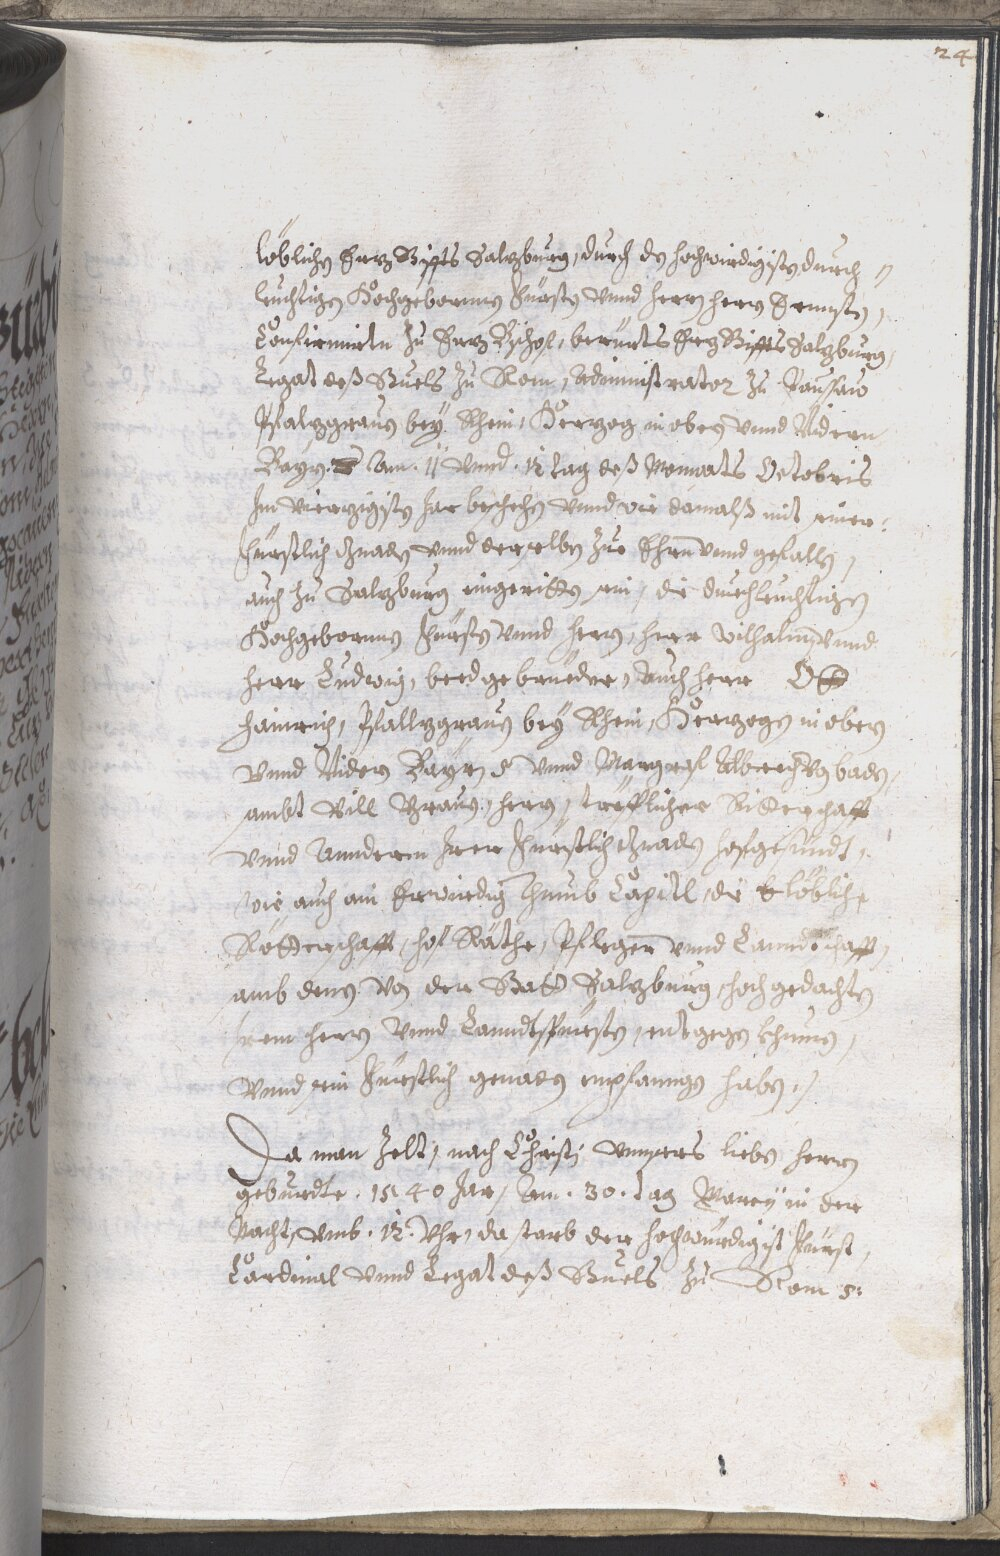 24
löblichn Erzstiffts Salzburg, durch dn hochwirdigistn durch=
leuchtigen Hochgebornnen Fürstn vnnd herrn herrn Ernnstn,
Confiermirtn zu Erzbischof, berürts Erzstiffts Salzburg,
Legat deß Stuels zu Rom, Administrator zu Passau
Pfalzgraue bey Rhein, Herzog in obern vnnd Nidern
Bayrn. Am .11 vnnd .12 tag deß Monnats Octobris
Im vierzigistn Jar beschehn vnnd wie damalß mit seiner
Fürstlich Gnadn vnnd derselbn zue Ehrn vnnd gefalln,
auch zu Salzburg eingerittn sein, die durchleuchtigen
Hochgebornnen Fürstn vnnd herrn, herr Wilhalm, vnnd
herr Ludwig, beed gebrueder, Auch herr Ott
Hainrich, Pfallzgrauen bey Rhein, Herzogn in obern
vnnd Nidern Bayrn vnnd Marggraf Albrecht von badn,
sambt vill Grauen, herrn, trefflicher Ritterschafft
vnnd Annderm Irer Fürstlich Gnadn hofgesündt,
wie auch ain Erwirdig Thumb Capitl, die Eelöbliche
Ritterschafft, hof Räthe, Pfleger vnnd Lanndtschafft,
samb denen von der Statt Salzburg, hochgedachten
Irem herrn vnnd Lanndtsfürstn, entgegn khumen,
vnnd sein Fürstlich genaden empfanngn habn.
Da man Zelt, nach Christj vnnsers lieben herrn
geburdte .1540 Jar, Am .30. tag Marcy in der
Nacht, vmb .12. Vhr, da starb der hochwürdigist Fürst,
Cardinal vnnd Legat deß Stuels Zu Rom